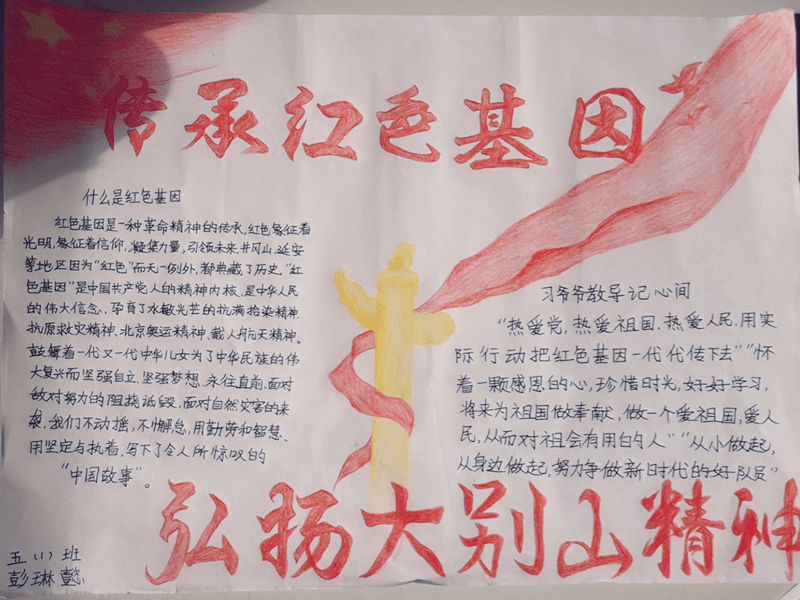 传承红色基因
什么是红色基因
红色基因是一种革命精神的传承,红色象征着
光明,象征着信仰,凝集力量,引领未来,井冈山、延安
等地区因为“红色”而无一例外,都典藏了历史。“红
色基因”是中国共产党人的精神内核、是中华人民
的伟大信念、孕育了永敏光芒的抗满抢染精神、
抗原救灾精神、北京奥运精神、载人航天精神。
鼓舞着一代又一代中华儿女为了中华民族的伟
大复兴而坚强自立、坚强梦想、永往直前,面对
敌对努力的阻挠诋毁,面对自然灾害的来
袭,我们不动摇,不懈怠,用勤劳和智慧、
用坚定与执着,写下了令人所惊叹的
“中国故事”。
习爷爷教导记心间
“热爱党,热爱祖国,热爱人民,用实
际行动把红色基因一代代传下去”“怀
着一颗感恩的心,珍惜时光,好好学习,
将来为祖国做奉献,做一个爱祖国,爱人
民,从而对祖会有用的人”“从小做起,
从身边做起,努力争做新时代的好队员”
弘扬大别山精神
五(1)班
彭琳懿